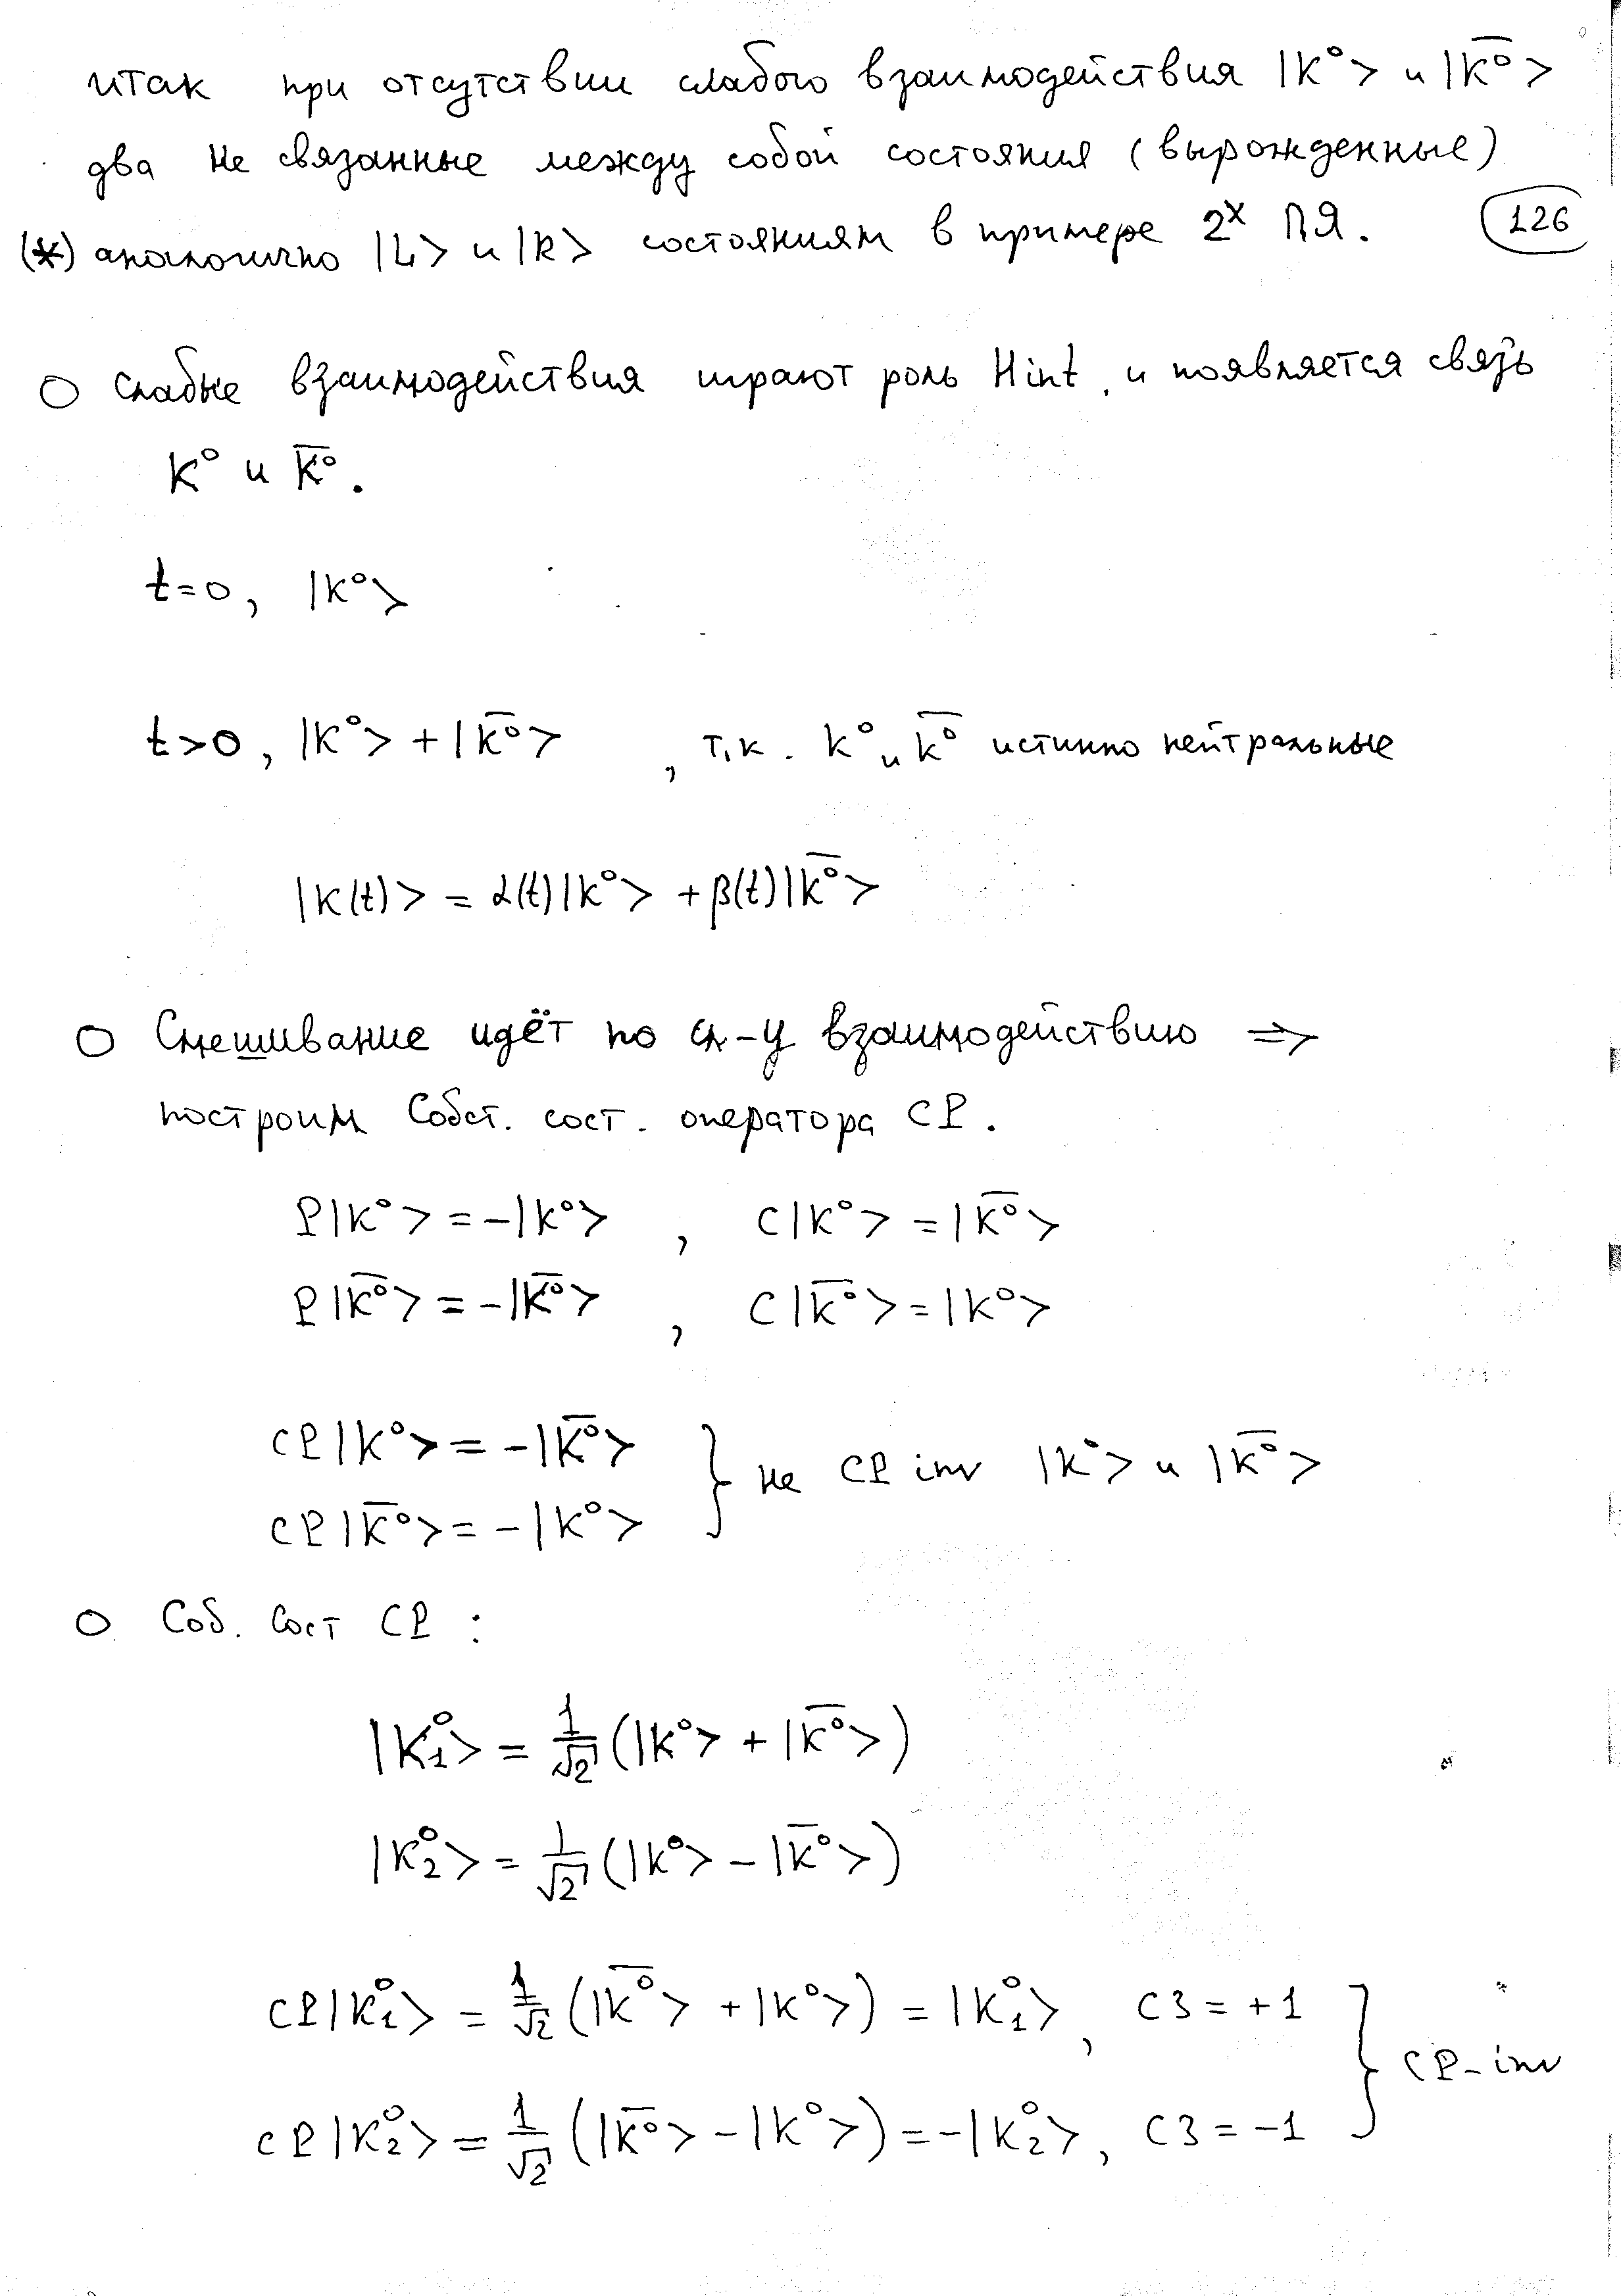 итак при отсутствии слабого взаимодействия |K⁰> и |K̅⁰>
два не связанные между собой состояния (вырожденные)
(*) аналогично |L> и |R> состояниям в примере 2ˣ ПЯ.
126
○ Слабые взаимодействия играют роль Hint, и появляется связь
K⁰ и K̅⁰.
t=0, |K⁰>
t>0, |K⁰> + |K̅⁰> , т.к. K⁰ и K̅⁰ истинно нейтральные
|K(t)> = α(t)|K⁰> + β(t)|K̅⁰>
○ Смешивание идёт по сл-у взаимодействию ⇒
построим Собст. сост. оператора CP.
P|K⁰> = -|K⁰> , C|K⁰> = |K̅⁰>
P|K̅⁰> = -|K̅⁰> , C|K̅⁰> = |K⁰>
CP|K⁰> = -|K̅⁰> } не CP inv |K⁰> и |K̅⁰>
CP|K̅⁰> = -|K⁰>
○ Соб. Сост CP :
|K₁⁰> = 1/√2 (|K⁰> + |K̅⁰>)
|K₂⁰> = 1/√2 (|K⁰> - |K̅⁰>)
CP|K₁⁰> = 1/√2 (|K̅⁰> + |K⁰>) = |K₁⁰>, СЗ = +1 } CP-inv
CP|K₂⁰> = 1/√2 (|K̅⁰> - |K⁰>) = -|K₂⁰>, СЗ = -1